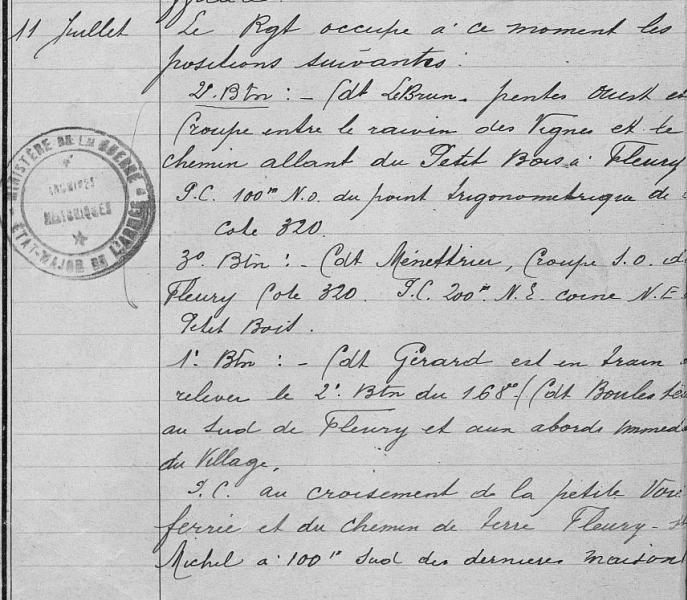 11 Juillet
Le Rgt occupe à ce moment les
positions suivantes :
2e. Btn : - Cdt LeBrun. pentes Ouest et
Croupe entre le ravin des Vignes et le
chemin allant du Petit Bois à Fleury
P.C. 100m N.O. du point trigonometrique de
cote 320.
3e. Btn : - Cdt Ménettrier, Croupe S.O. de
Fleury Cote 320. P.C. 200m N.E. corne N.E
Petit Bois.
1e Btn : - Cdt Gérard est en train
relever le 2e. Btn du 168e (Cdt Boules
au Sud de Fleury et aux abords immed
du Village.
P.C. au croisement de la petite Voie
ferrée et du chemin de terre Fleury -
Michel à 100m Sud des dernieres maison
MINISTÈRE DE LA GUERRE
ARCHIVES
HISTORIQUES
ÉTAT-MAJOR DE L'ARMÉE